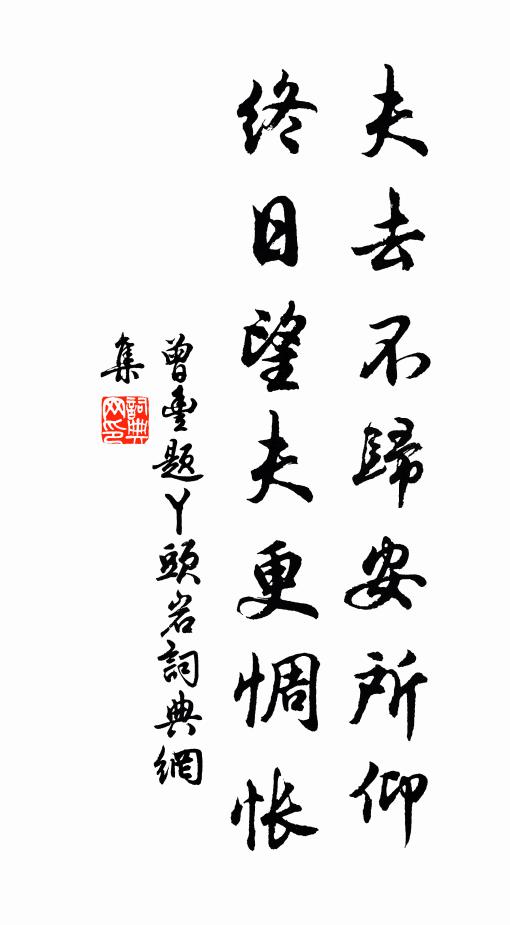 夫去不歸安所仰
終日望夫更惆悵
曾豐題丫頭岩詞典網
集
詞典
网印